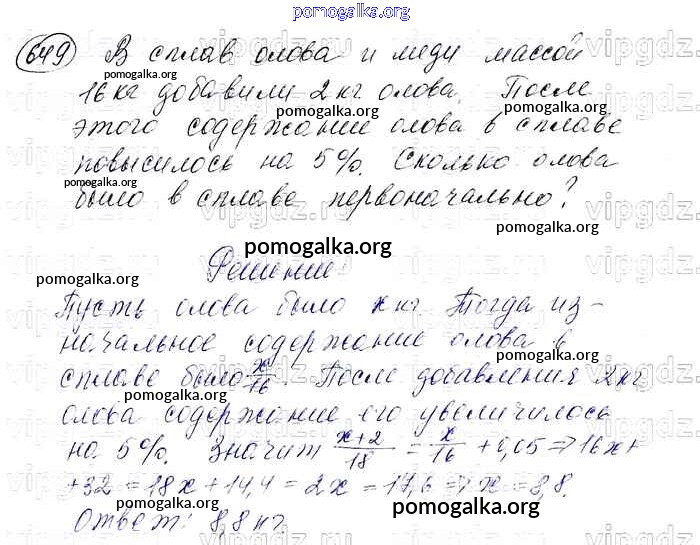 pomogalka.org
649 В сплав олова и меди массой
pomogalka.org
16 кг добавили 2 кг олова. После
pomogalka.org
этого содержание олова в сплаве
повысилось на 5%. Сколько олова
pomogalka.org
pomogalka.org
было в сплаве первоначально?
pomogalka.org
Решение:
pomogalka.org
pomogalka.org
Пусть олова было x кг. Тогда из-
начальное содержание олова в
pomogalka.org
сплаве было x/16. После добавления 2 кг
pomogalka.org
олова содержание его увеличилось
pomogalka.org
на 5%. Значит (x+2)/18 = x/16 + 0,05 ⇒ 16x+
+32 = 18x + 14,4 = 2x = 17,6 ⇒ x = 8,8.
pomogalka.org
pomogalka.org
Ответ: 8,8 кг.
vipgdz.ru